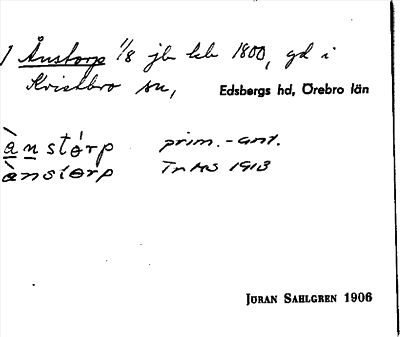 1 Ånstorp 1/8 jb kb 1800, gd i
Kvistbro sn, Edsbergs hd, Örebro län
ànstórp prim.-ant.
ànstórp TnHS 1913
JÖRAN SAHLGREN 1906